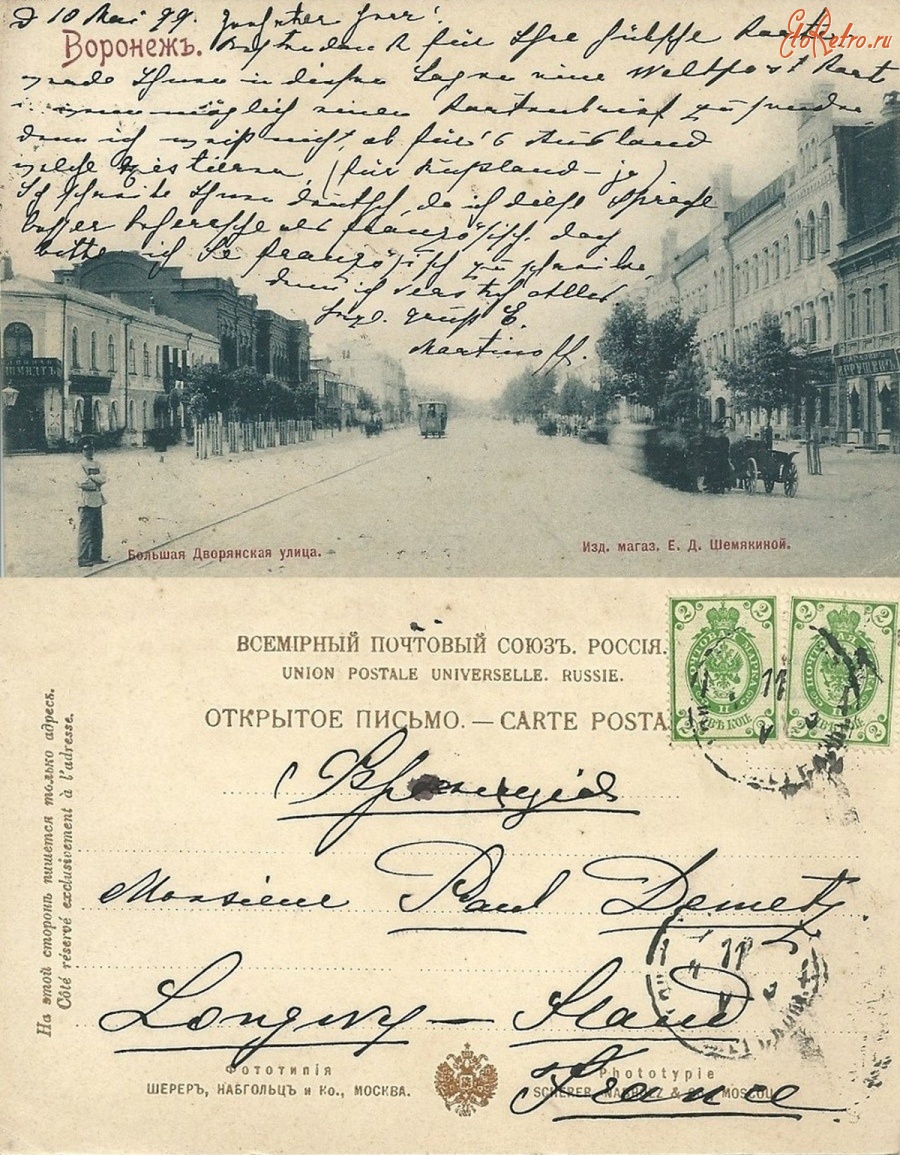 EtoRetro.ru
d 10 Mai 99. Geehrter Herr!
Воронежъ.
für Ihre hübsche Karte
Ihnen in diesen Tagen eine Weltpost Kart
möglich einen Kartenbrief zu senden
denn ich weiß nicht, ob für's Ausland
welche existieren, (für Rußland – ja)
Ich schreibe Ihnen deutsch, da ich diese Sprache
besser beherrsche als französisch, doch
bitte ich Sie französisch zu schreiben,
denn ich verstehe alles
gruß E.
Martinoff.
Большая Дворянская улица.
Изд. магаз. Е. Д. Шемякиной.
ВСЕМІРНЫЙ ПОЧТОВЫЙ СОЮЗЪ. РОССІЯ.
UNION POSTALE UNIVERSELLE. RUSSIE.
ОТКРЫТОЕ ПИСЬМО. — CARTE POSTA
2 2 2 2
ПОЧТОВАЯ МАРКА
ДВѢ КОП.
На этой сторонѣ пишется только адресъ.
Côté réservé exclusivement à l'adresse.
Франція
Monsieur Paul Demetz
Longwy –
France
Фототипія
ШЕРЕРЪ, НАБГОЛЬЦЪ и Ко., МОСКВА.
Phototypie
SCHERER, NABHOLZ & Co., MOSCOU